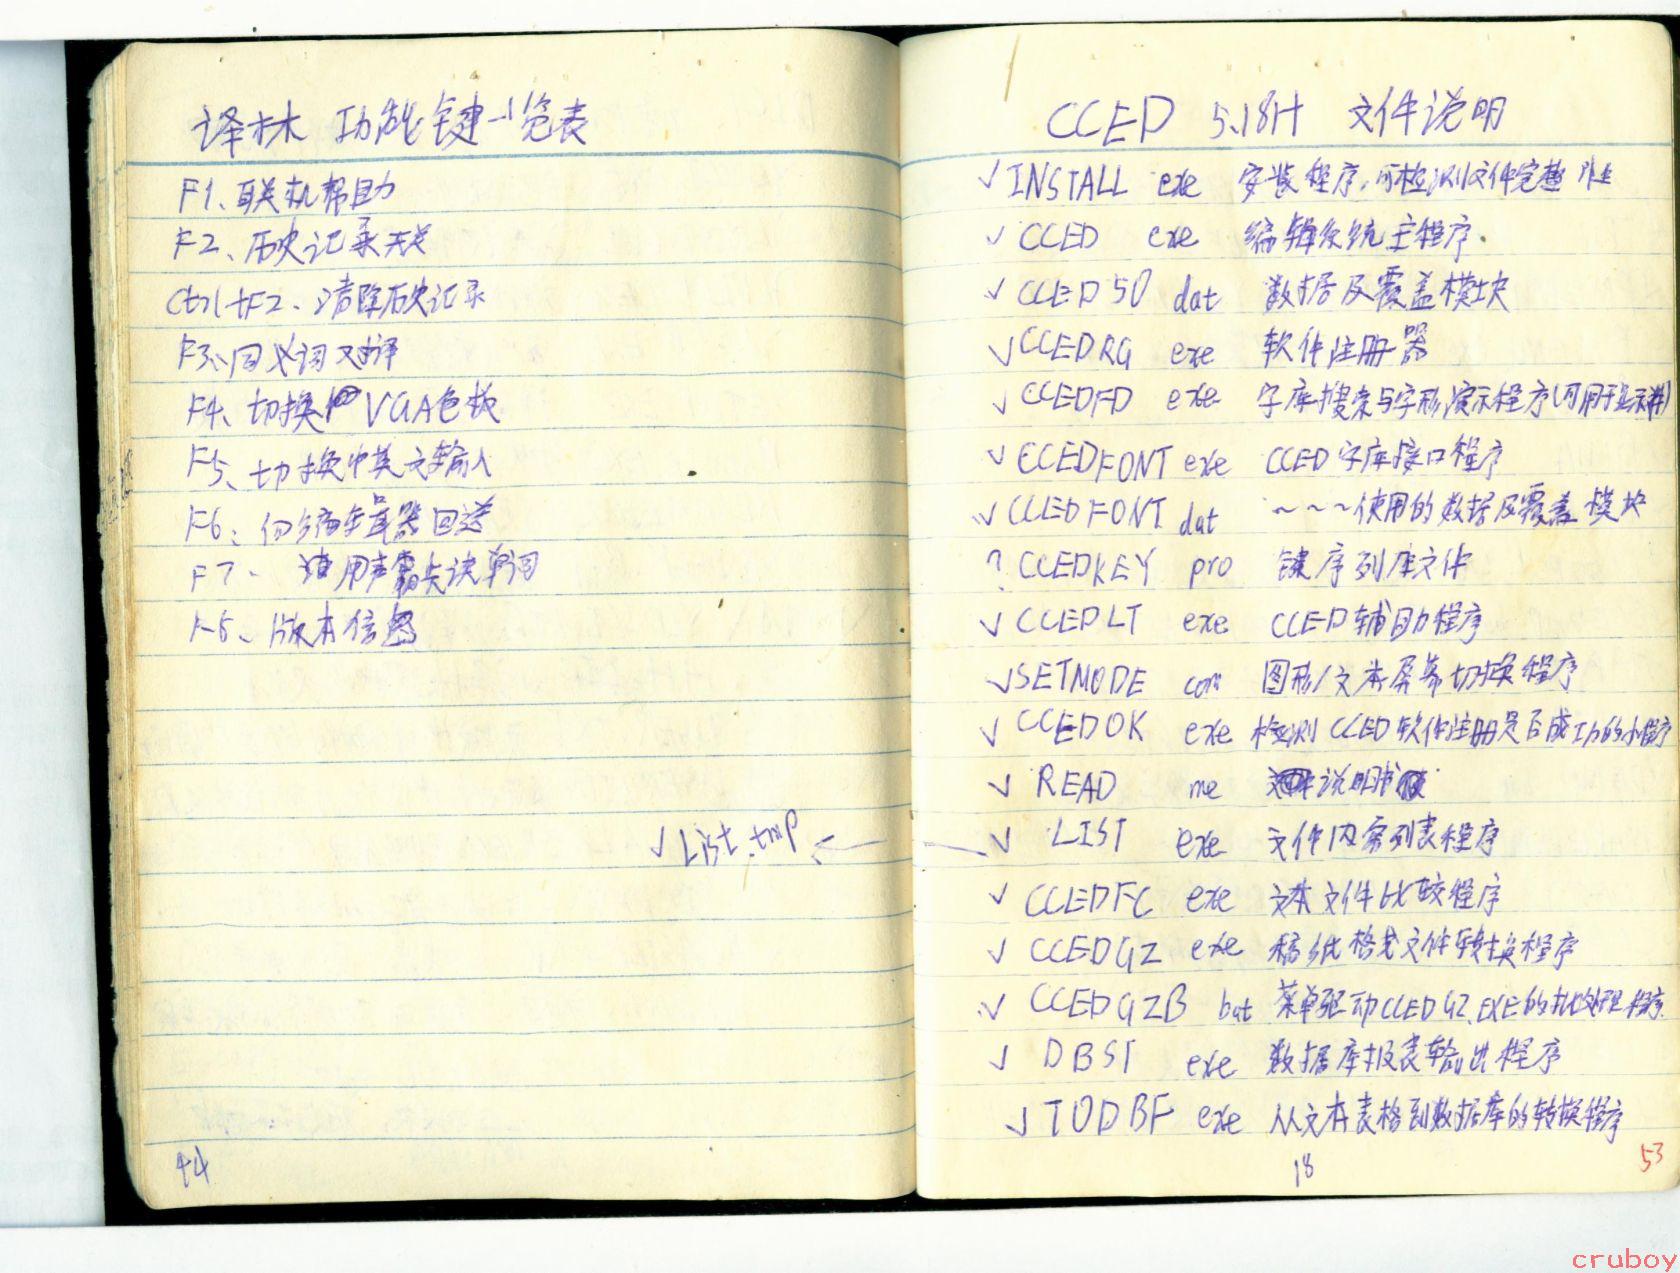 译林 功能键一览表
F1、联机帮助
F2、历史记录开关
Ctrl+F2、清除历史记录
F3、同义词对译
F4、切换 VGA色板
F5、切换中英文输入
F6、向编辑器回送
F7、用声霸卡读单词
F8、版本信息
√ List.tmp ←
44
CCED 5.18H 文件说明
√ INSTALL exe 安装程序,可检测文件完整性
√ CCED exe 编辑系统主程序.
√ CCED50 dat 数据及覆盖模块
√ CCEDRG exe 软件注册器
√ CCEDFD exe 字库搜索与字形演示程序(可用于显示)
√ CCEDFONT exe CCED字库接口程序
√ CCEDFONT dat ~~~使用的数据及覆盖模块
? CCEDKEY pro 键序列库文件
√ CCEDLT exe CCED辅助程序
√ SETMODE com 图形/文本屏幕切换程序
√ CCEDOK exe 检测CCED软件注册是否成功的小程序
√ READ me 说明书
√ LIST exe 文件内容列表程序
√ CCEDFC exe 文本文件比较程序
√ CCEDGZ exe 稿纸格式文件转换程序
√ CCEDGZB bat 菜单驱动CCEDGZ.EXE的批处理程序.
√ DBST exe 数据库报表输出程序
√ TODBF exe 从文本表格到数据库的转换程序
18
53
cruboy